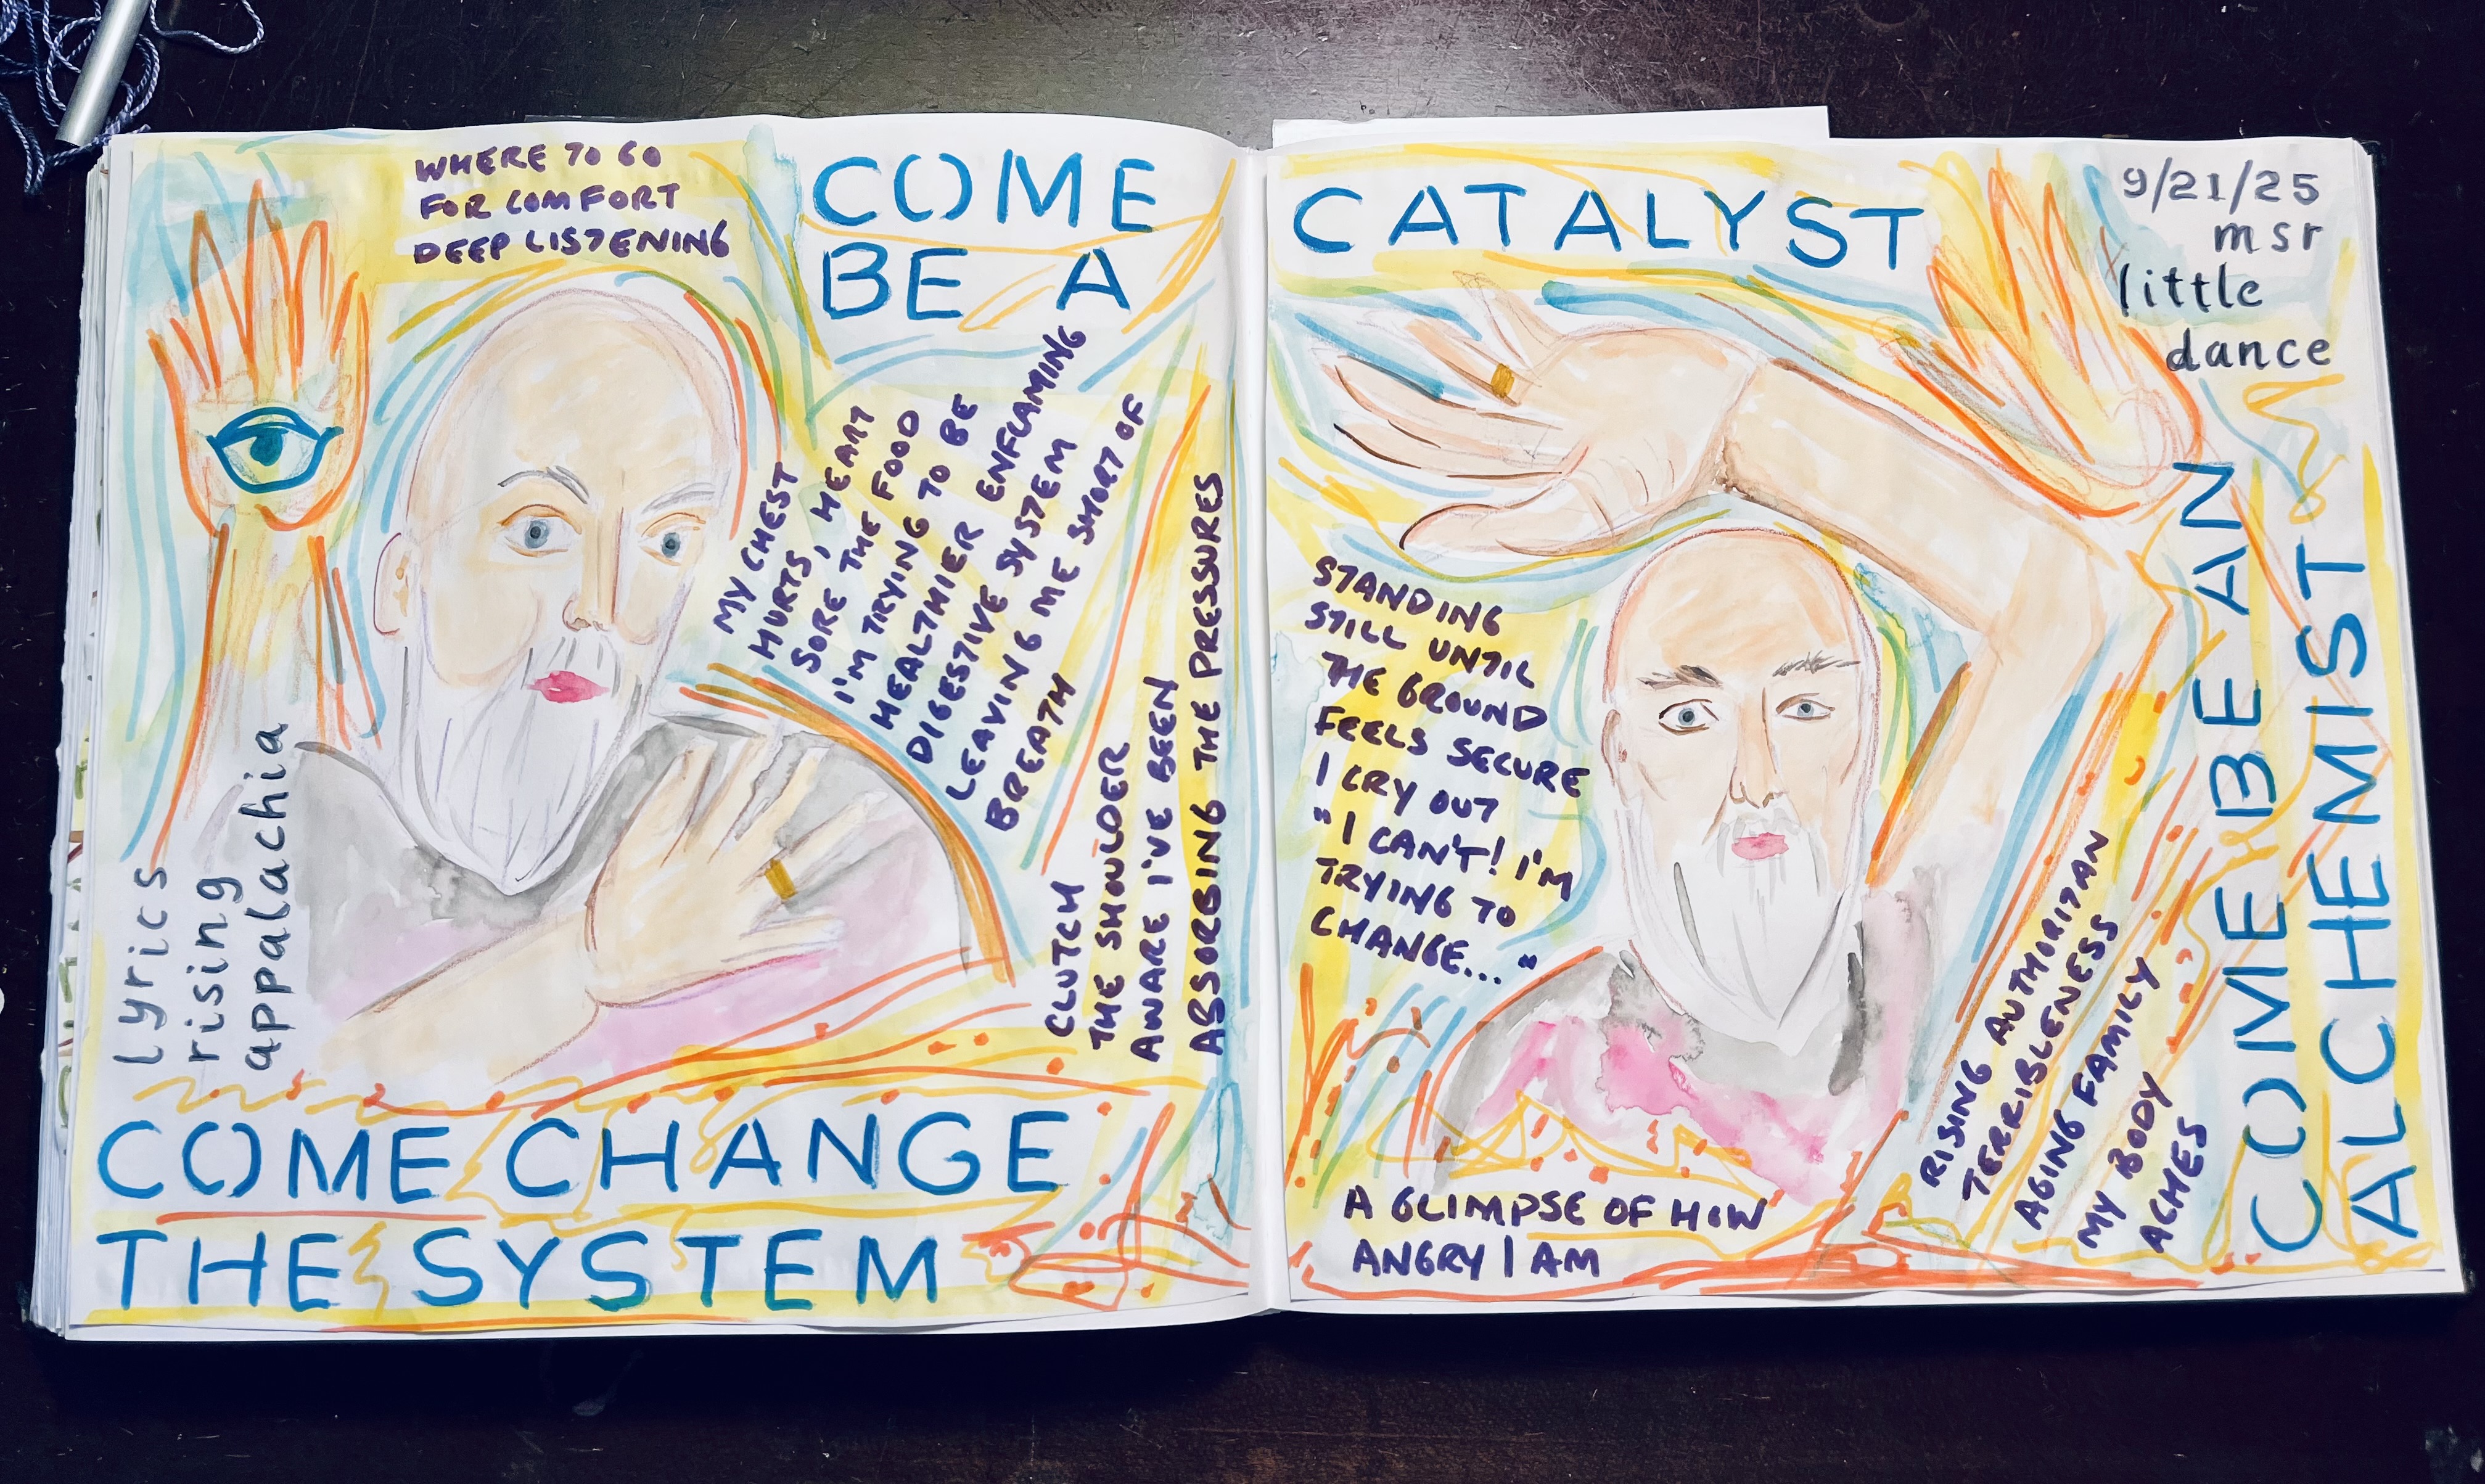 WHERE TO GO
FOR COMFORT
DEEP LISTENING
COME
BE A
MY CHEST
HURTS, HEART
SORE THE FOOD
I'M TRYING TO BE
HEALTHIER ENFLAMING
DIGESTIVE SYSTEM
LEAVING ME SHORT OF
BREATH
CLUTCH
THE SHOULDER
AWARE I'VE BEEN
ABSORBING THE PRESSURES
lyrics
rising
appalachia
COME CHANGE
THE SYSTEM
CATALYST
9/21/25
msr
little
dance
STANDING
STILL UNTIL
THE GROUND
FEELS SECURE
I CRY OUT
"I CAN'T! I'M
TRYING TO
CHANGE..."
A GLIMPSE OF HOW
ANGRY I AM
RISING AUTHORITAN
TERRIBLENESS
AGING FAMILY
MY BODY
ACHES
COME BE AN
ALCHEMIST